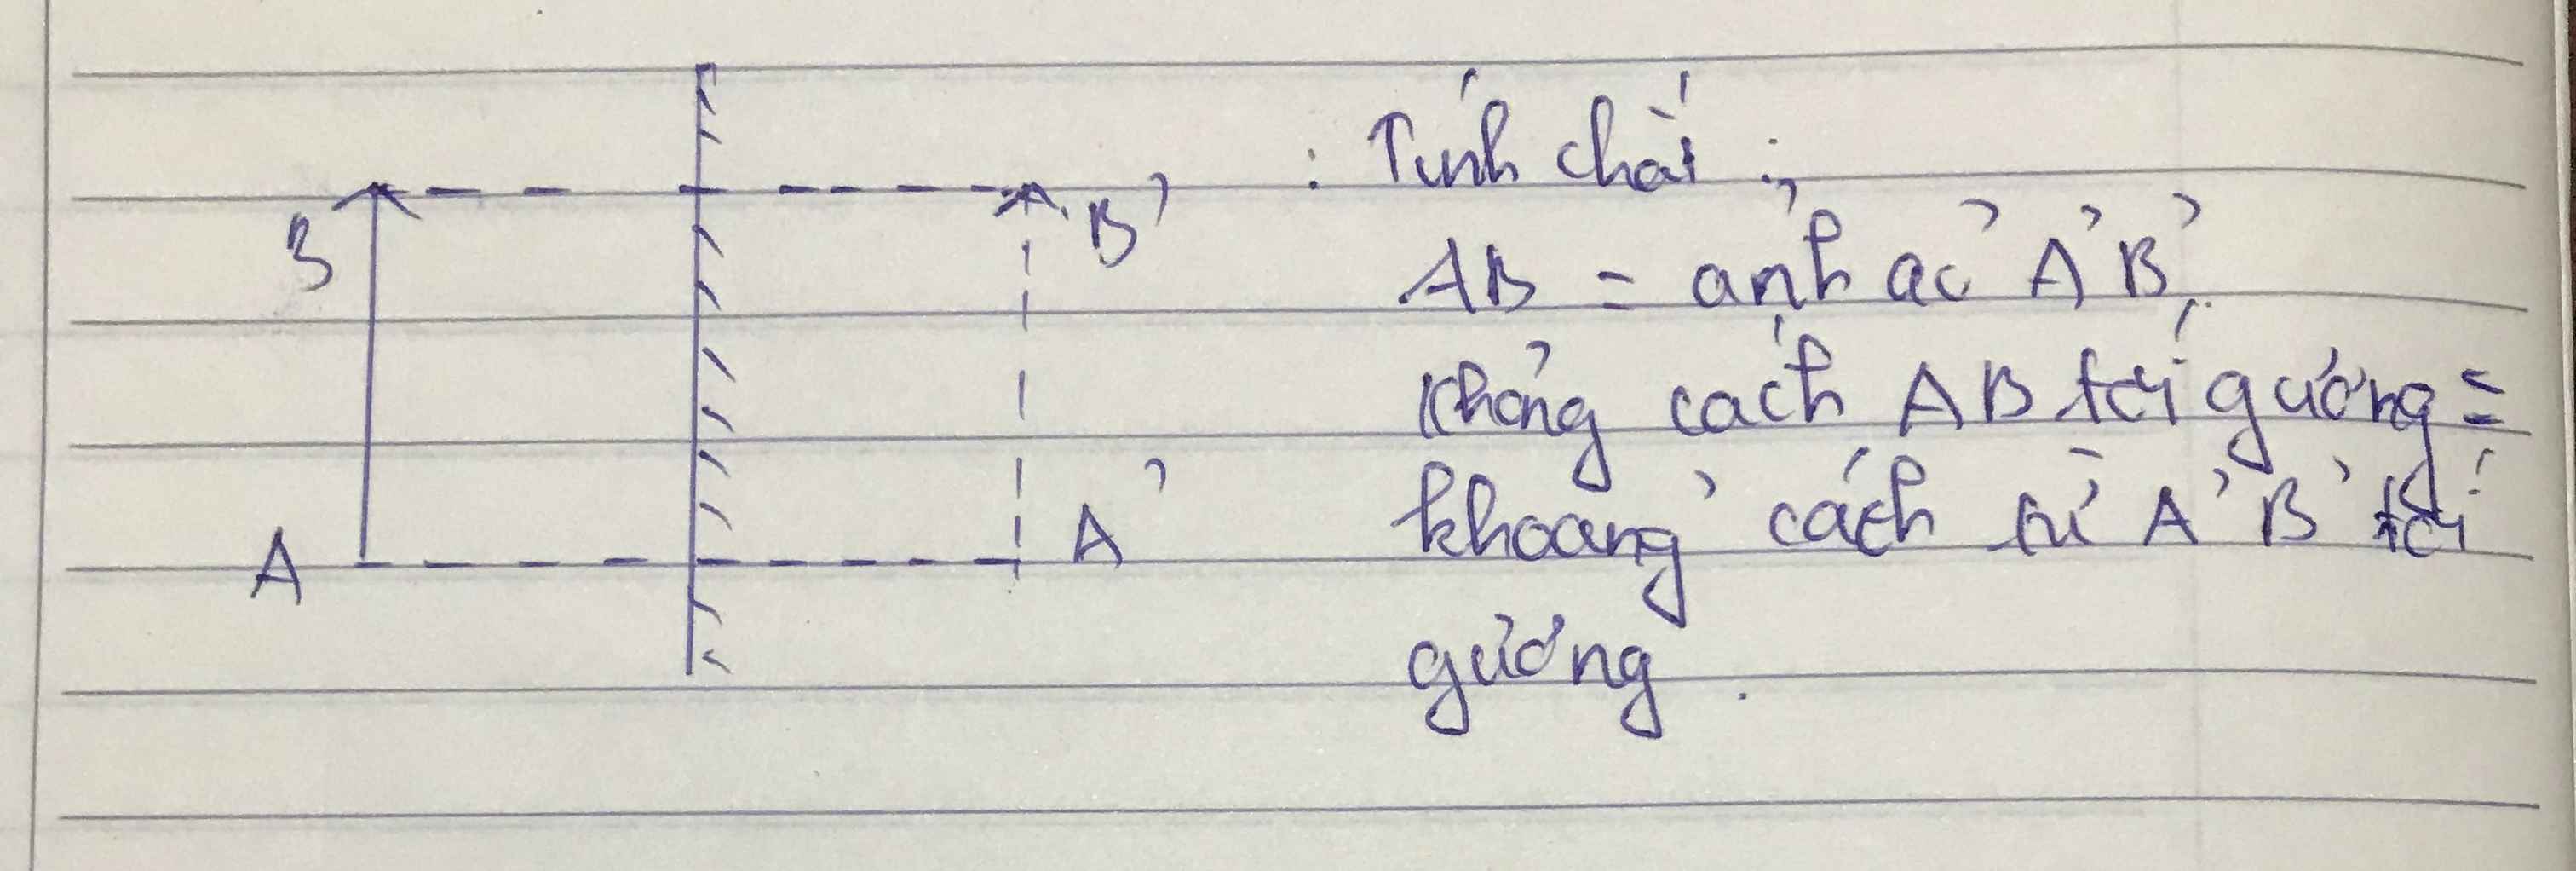 : Tính chất :
B B'
AB = ảnh ảo A'B'
Khỏng cách AB tới gương =
A A'
khoảng cách từ A'B' tới
gương.